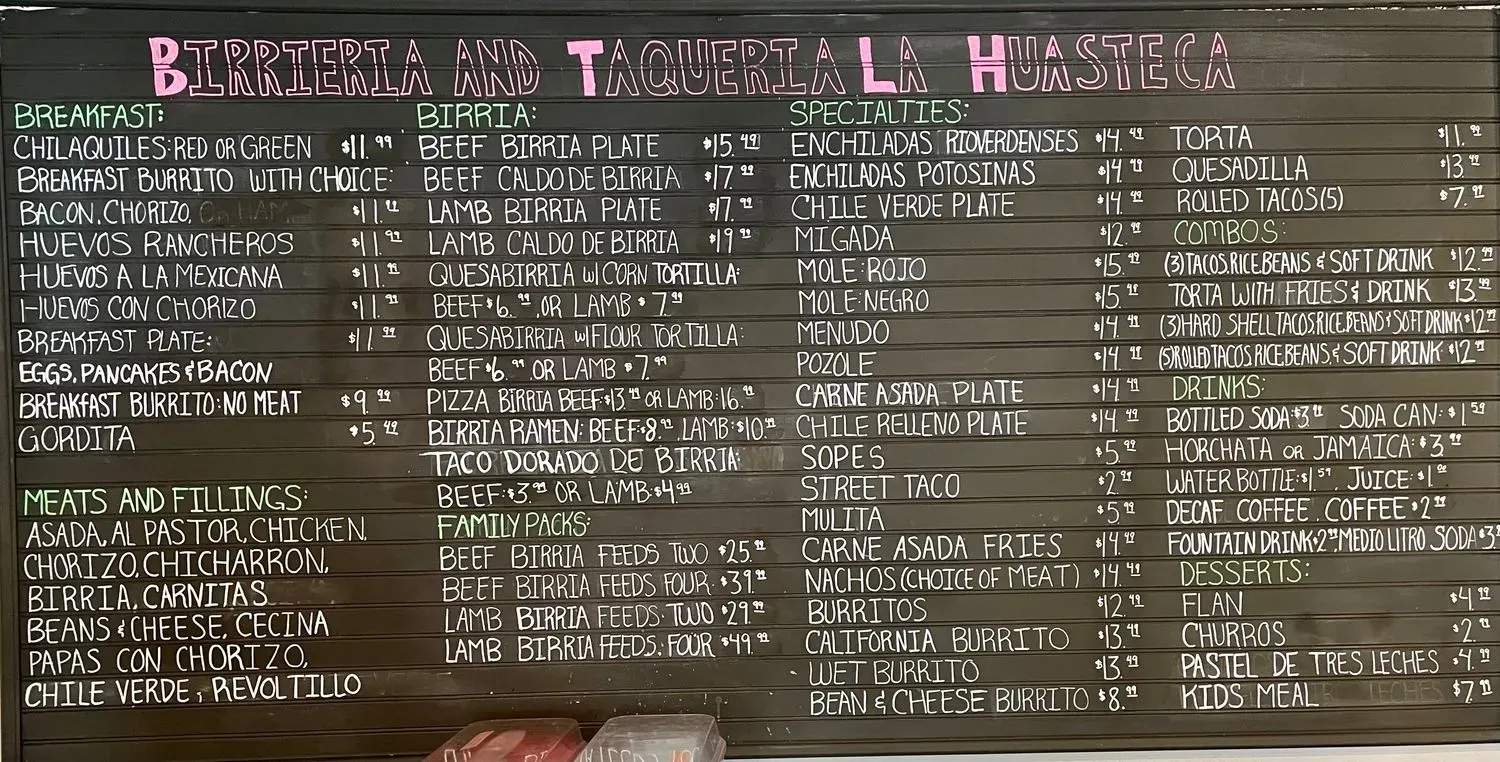 BIRRIERIA AND TAQUERIA LA HUASTECA
BREAKFAST:
CHILAQUILES: RED OR GREEN $11.99
BREAKFAST BURRITO WITH CHOICE:
BACON, CHORIZO, OR HAM $11.99
HUEVOS RANCHEROS $11.99
HUEVOS A LA MEXICANA $11.99
HUEVOS CON CHORIZO $11.99
BREAKFAST PLATE: $11.99
EGGS, PANCAKES & BACON
BREAKFAST BURRITO: NO MEAT $9.99
GORDITA $5.49
MEATS AND FILLINGS:
ASADA, AL PASTOR, CHICKEN,
CHORIZO, CHICHARRON,
BIRRIA, CARNITAS
BEANS & CHEESE, CECINA
PAPAS CON CHORIZO,
CHILE VERDE, REVOLTILLO
BIRRIA:
BEEF BIRRIA PLATE $15.49
BEEF CALDO DE BIRRIA $17.99
LAMB BIRRIA PLATE $17.99
LAMB CALDO DE BIRRIA $19.99
QUESABIRRIA W/ CORN TORTILLA:
BEEF $6.99 OR LAMB $7.99
QUESABIRRIA W/ FLOUR TORTILLA:
BEEF $6.99 OR LAMB $7.99
PIZZA BIRRIA BEEF: $13.49 OR LAMB: 16.99
BIRRIA RAMEN: BEEF: $8.99, LAMB: $10.99
TACO DORADO DE BIRRIA:
BEEF: $3.99 OR LAMB: $4.99
FAMILY PACKS:
BEEF BIRRIA FEEDS TWO $25.99
BEEF BIRRIA FEEDS FOUR: $39.99
LAMB BIRRIA FEEDS: TWO $29.99
LAMB BIRRIA FEEDS: FOUR $49.99
SPECIALTIES:
ENCHILADAS RIOVERDENSES $14.49
ENCHILADAS POTOSINAS $14.49
CHILE VERDE PLATE $14.49
MIGADA $12.99
MOLE: ROJO $15.49
MOLE: NEGRO $15.49
MENUDO $14.49
POZOLE $14.49
CARNE ASADA PLATE $14.49
CHILE RELLENO PLATE $14.49
SOPES $5.99
STREET TACO $2.99
MULITA $5.99
CARNE ASADA FRIES $14.49
NACHOS (CHOICE OF MEAT) $14.49
BURRITOS $12.49
CALIFORNIA BURRITO $13.49
WET BURRITO $13.49
BEAN & CHEESE BURRITO $8.99
TORTA $11.99
QUESADILLA $13.99
ROLLED TACOS (5) $7.99
COMBOS:
(3) TACOS, RICE, BEANS & SOFT DRINK $12.99
TORTA WITH FRIES & DRINK $13.99
(3) HARD SHELL TACOS, RICE, BEANS & SOFT DRINK $12.99
(5) ROLLED TACOS, RICE, BEANS, & SOFT DRINK $12.99
DRINKS:
BOTTLED SODA: $3.99 SODA CAN: $1.59
HORCHATA OR JAMAICA: $3.99
WATER BOTTLE: $1.59, JUICE: $1.00
DECAF COFFEE, COFFEE $2.99
FOUNTAIN DRINK $2.99, MEDIO LITRO SODA $3
DESSERTS:
FLAN $4.99
CHURROS $2.99
PASTEL DE TRES LECHES $4.99
KIDS MEAL LECHES $7.99